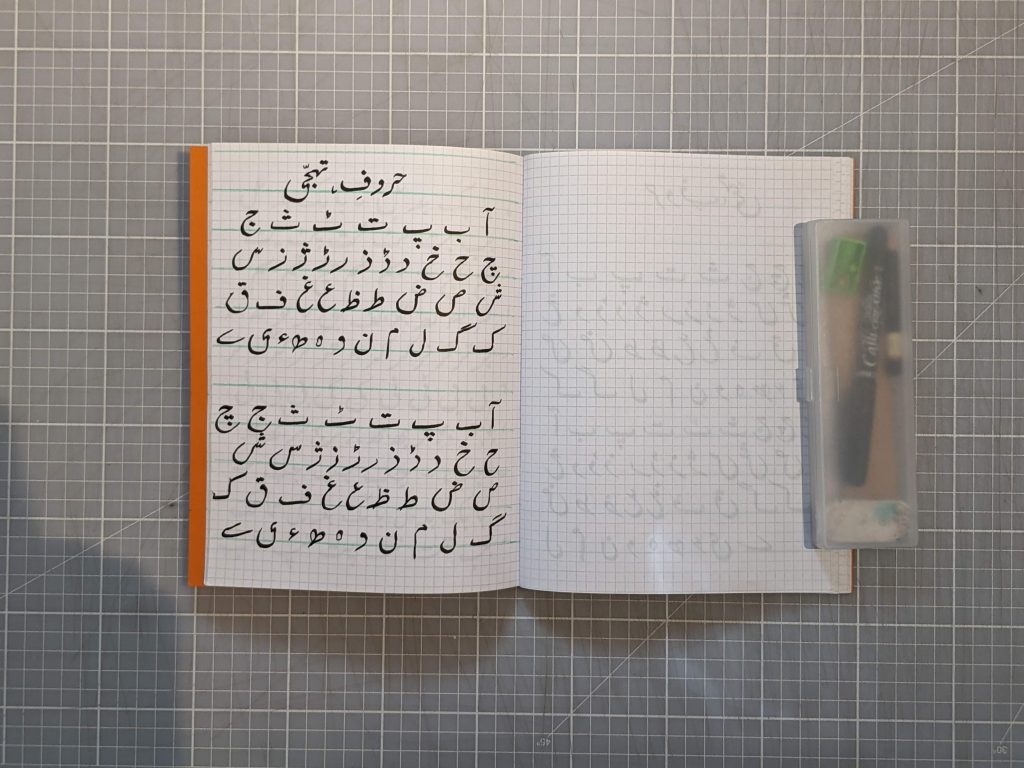 حروفِ تہجّی
آ ب پ ت ٹ ث ج
چ ح خ د ڈ ذ ر ڑ ژ ز س
ش ص ض ط ظ ع غ ف ق
ک گ ل م ن و ہ ھ ء ی ے
آ ب پ ت ٹ ث ج چ
ح خ د ڈ ذ ر ڑ ز ژ س ش
ص ض ط ظ ع غ ف ق ک
گ ل م ن و ہ ھ ء ی ے
45°
30°